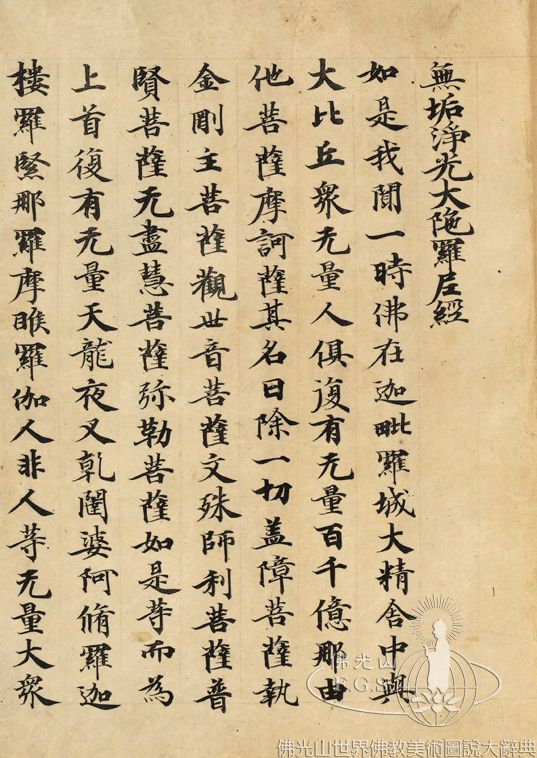 無垢淨光大陁羅尼經
如是我聞一時佛在迦毗羅城大精舍中與
大比丘衆无量人俱復有无量百千億那由
他菩薩摩訶薩其名曰除一切盖障菩薩執
金剛主菩薩觀世音菩薩文殊師利菩薩普
賢菩薩无盡慧菩薩弥勒菩薩如是等而為
上首復有无量天龍夜叉乹闥婆阿脩羅迦
樓羅緊那羅摩睺羅伽人非人等无量大衆
佛光山
F.G.S.
佛光山世界佛教美術圖說大辭典